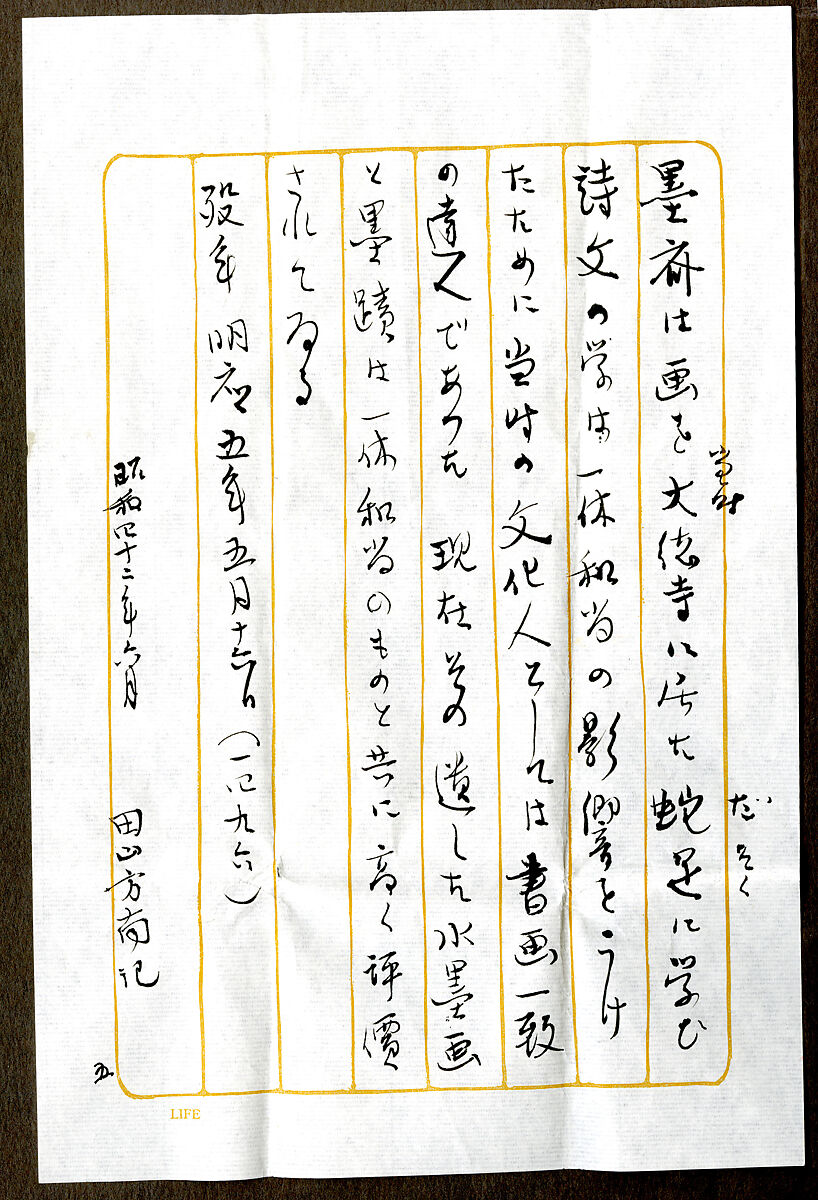 当時
だそく
墨斎は画を大徳寺に居た蛇足に学び
詩文の学は一休和尚の影響をうけ
たために当時の文化人としては書画一致
の達人であつた 現在その遺した水墨画
と墨蹟は一休和尚のものと共に高く評價
されてゐる
歿年 明應五年五月十六日(一四九六)
昭和四十二年六月 田山方南記
五
LIFE